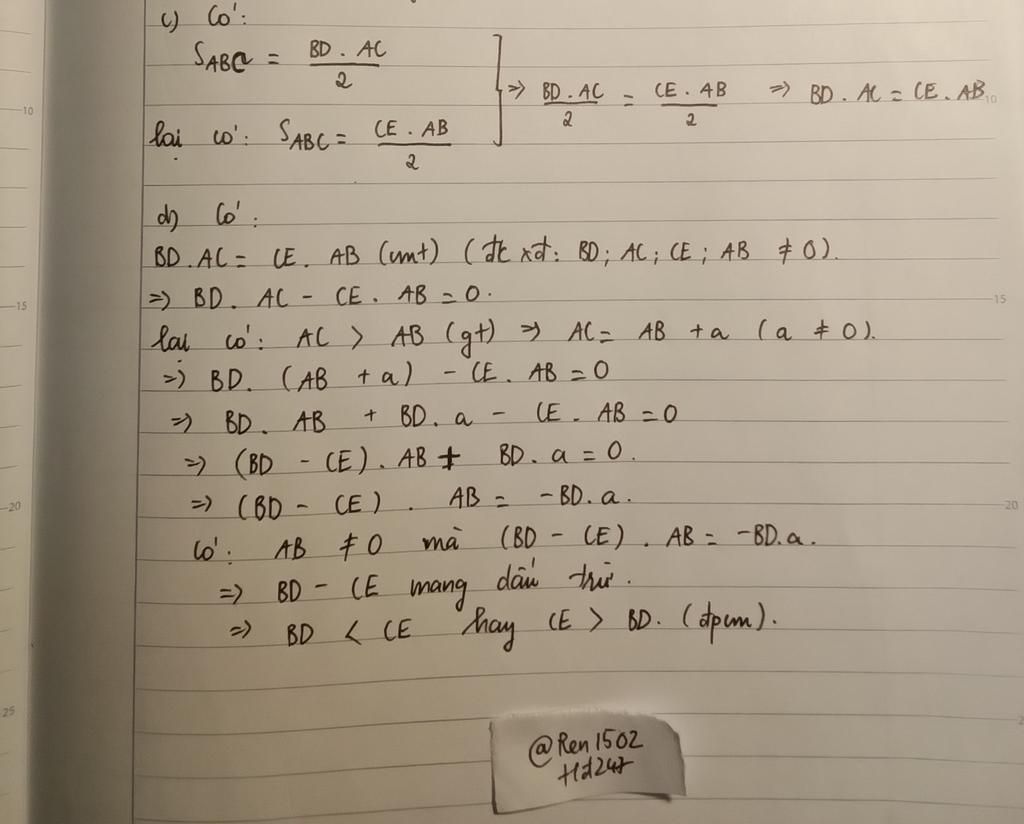 c) Có:
S_ABC = BD . AC / 2
lại có: S_ABC = CE . AB / 2
⇒ BD . AC / 2 = CE . AB / 2 ⇒ BD . AC = CE . AB
d) Có:
BD . AC = CE . AB (cmt) (đk xđ: BD; AC; CE; AB ≠ 0).
⇒ BD . AC - CE . AB = 0.
lại có: AC > AB (gt) ⇒ AC = AB + a (a ≠ 0).
⇒ BD . (AB + a) - CE . AB = 0
⇒ BD . AB + BD . a - CE . AB = 0
⇒ (BD - CE) . AB + BD . a = 0.
⇒ (BD - CE) . AB = -BD . a.
Có: AB ≠ 0 mà (BD - CE) . AB = -BD . a.
⇒ BD - CE mang dấu trừ.
⇒ BD < CE hay CE > BD. (đpcm).
@Ren1502
Hd247
10
15
20
25
10
15
20